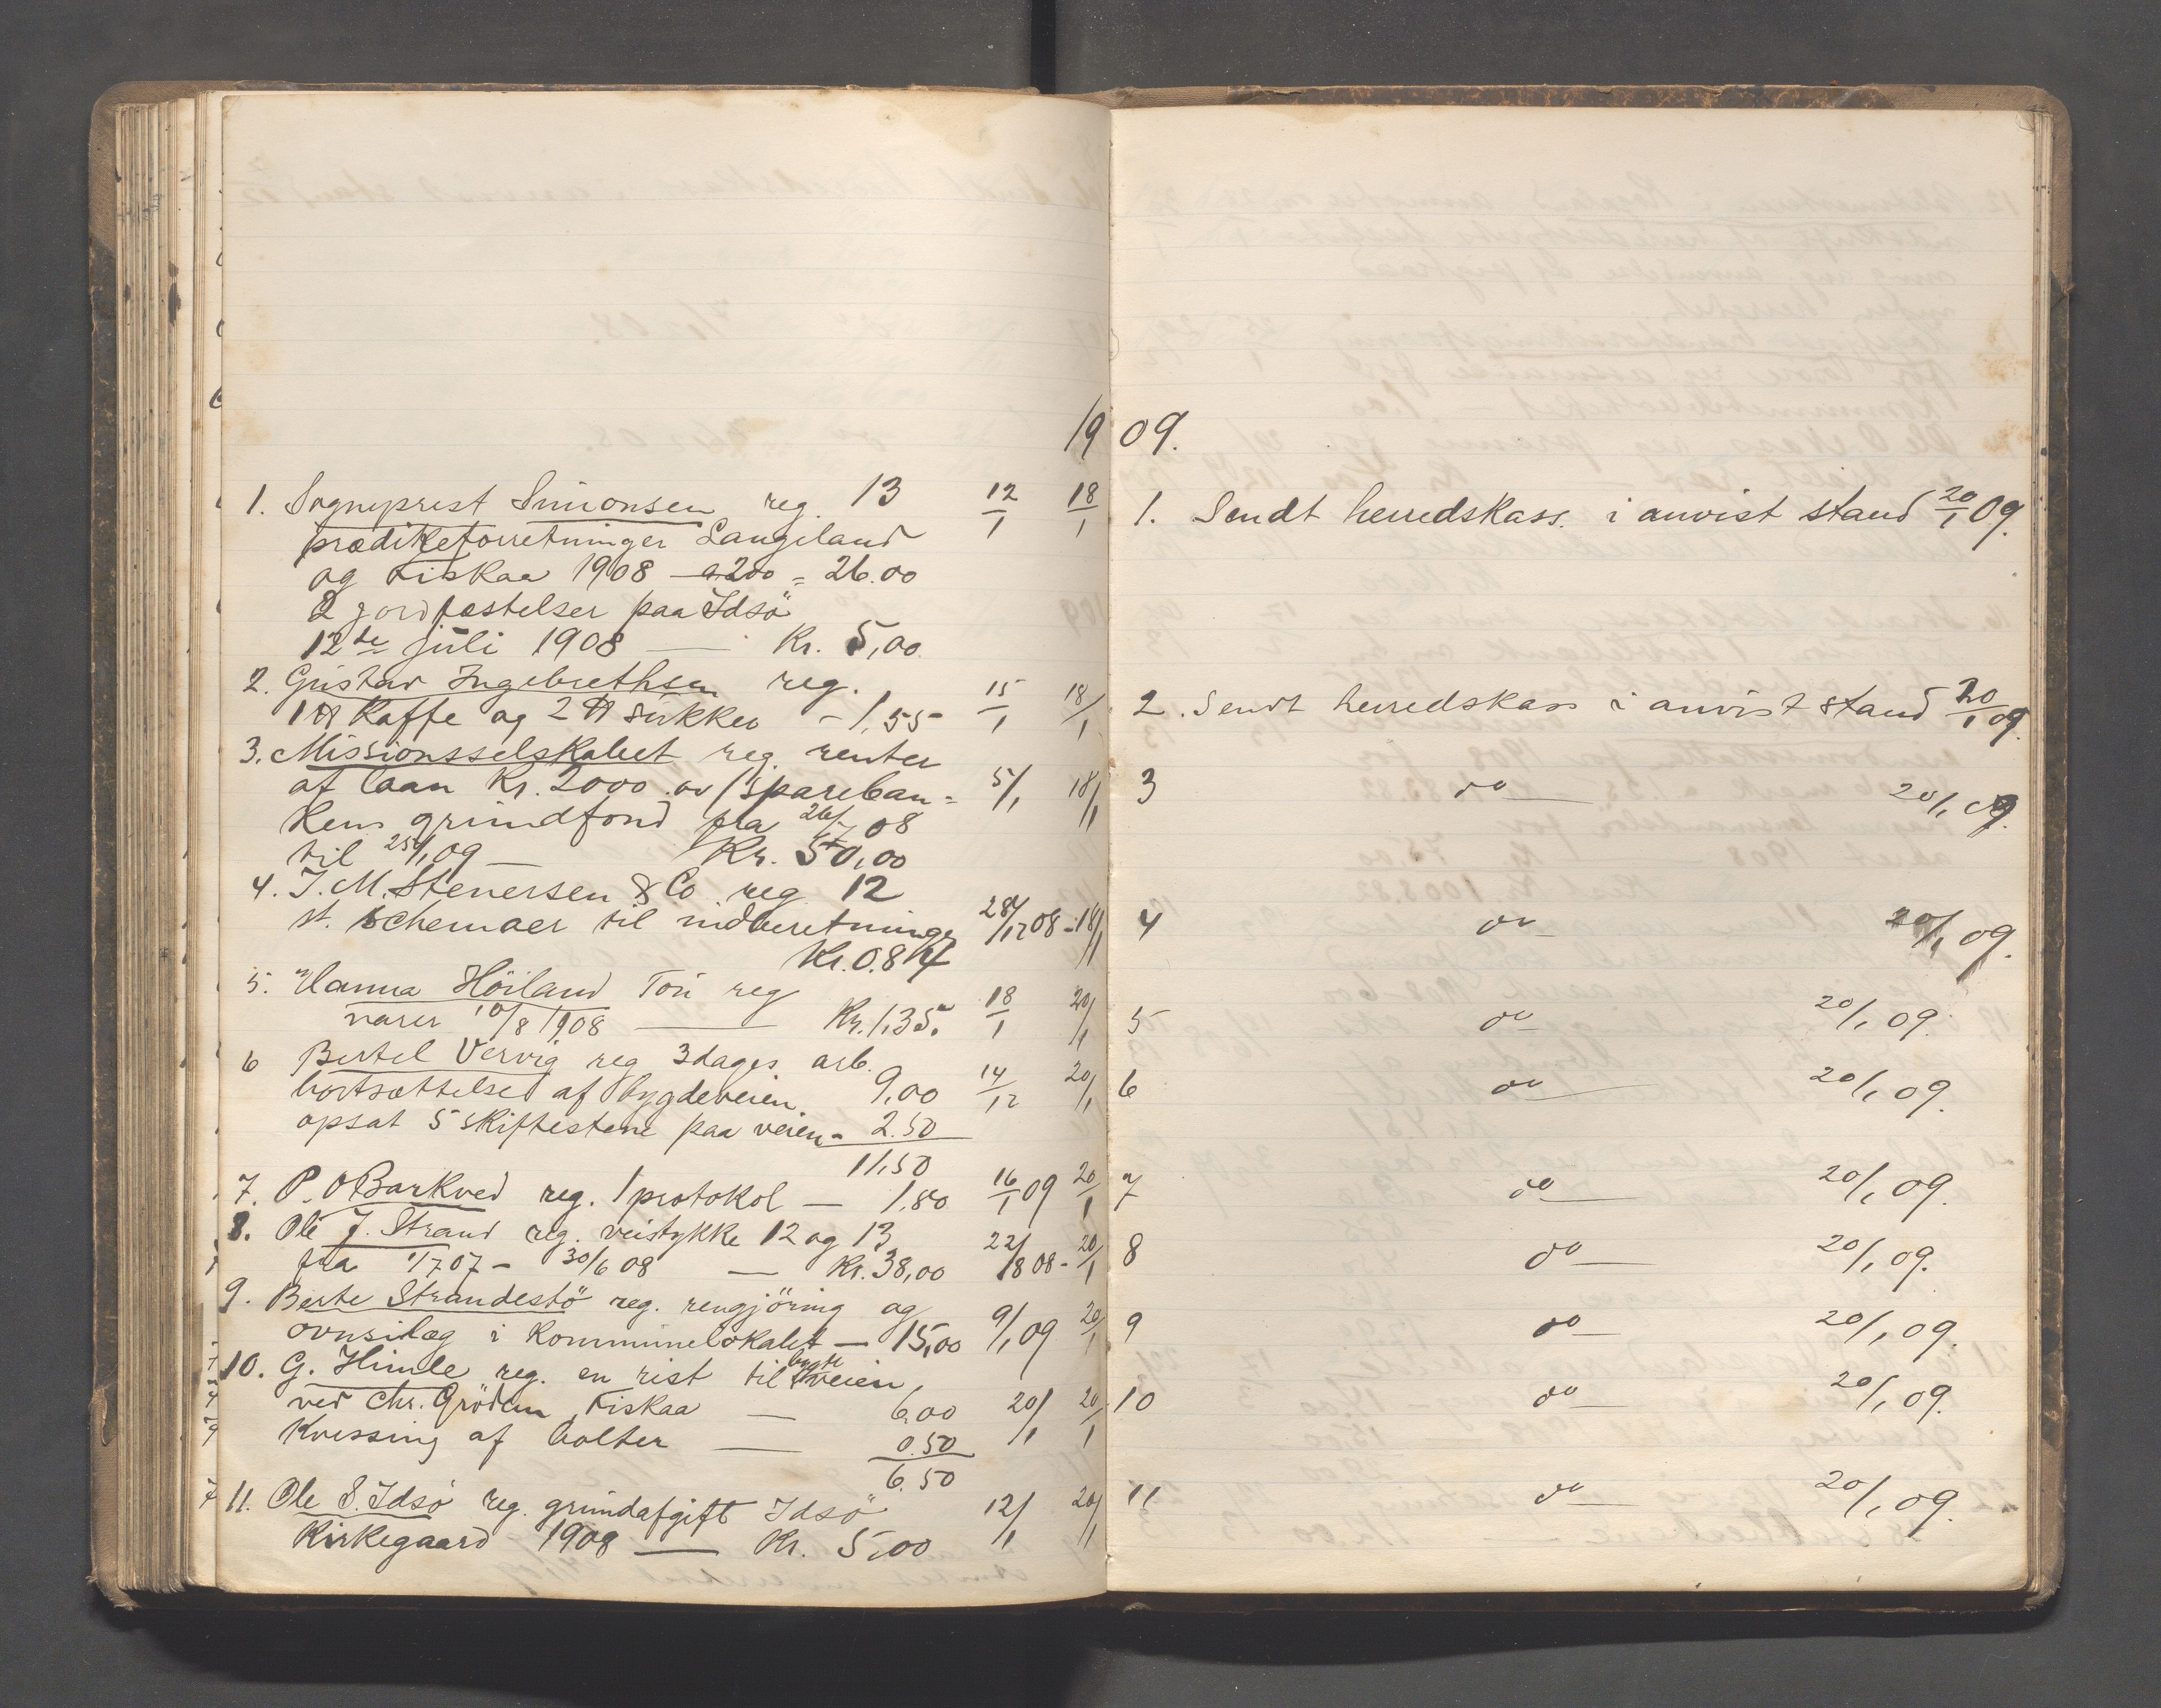 1909.
1. Sogneprest Simonsen reg. 13 12/1 18/1
prædikeforretninger Langeland
og Fiskaa 1908 — a 200 = 26.00
2 jordfæstelser paa Idsö
12te juli 1908 — Kr. 5,00
2. Gustav Ingebrethsen reg. 15/1 18/1
1 ℔ Kaffe og 2 ℔ sukker - 1,55
3. Missionsselskabet reg. renter
af laan Kr. 2000 av spareban= 5/1 18/1
kens grundfond fra 26/7 08
til 25/1 09 — Kr. 50,00
4. J. M. Stenersen & Co reg 12
st. schemaer til indberetninger 28/12 08 - 18/1
Kr. 0.84
5. Hanna Höiland Tou reg 18/1 20/1
varer 10/8 1908 — Kr. 1,35.
6 Bertel Vervig reg 3 dages arb.
bortsættelse af bygdeveien. 9,00 14/12 20/1
opsat 5 skiftestene paa veien - 2.50
11,50
7. P. O Barkved reg. 1 protokol — 1,80 16/1 09 20/1
8. Ole J. Strand reg. veistykke 12 og 13
fra 1/7 07 - 30/6 08 — Kr. 38,00 22/8 08 - 20/1
9. Berte Strandestö reg. rengjöring og
ovnsilæg i kommunelokalet — 15,00 9/1 09 20/1
10. G. Himle reg. en rist til bygdeveien,
ved Chr. Grödem, Fiskaa — 6,00 20/1 20/1
Kvessing af bolter — 0.50
6.50
11. Ole S. Idsö reg. grundafgift Idsö 12/1 20/1
Kirkegaard 1908 — Kr. 5,00
1. Sendt herredskass. i anvist stand 20/1 09.
2. Sendt herredskass i anvist stand 20/1 09.
3 do — 20/1 09.
4 do — 20/1 09.
5 do — 20/1 09.
6 do — 20/1 09.
7 do — 20/1 09.
8 do — 20/1 09.
9 do — 20/1 09.
10 do — 20/1 09.
11 do — 20/1 09.